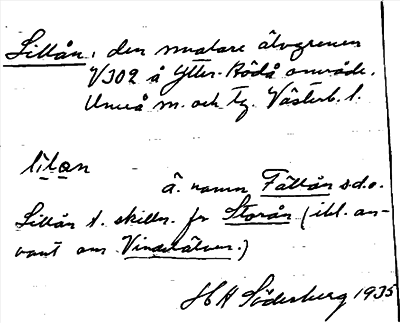 Lillån, den smalare älvgrenen
V302 å Ytter-Rödå område.
Umeå sn. och tg. Västerb. l.
lìlan
ä. namn Fällån sd.o.
Lillån t. skilln. fr Storån (ibl. an-
vänt om Vindelälven.)
HH Söderberg 1935